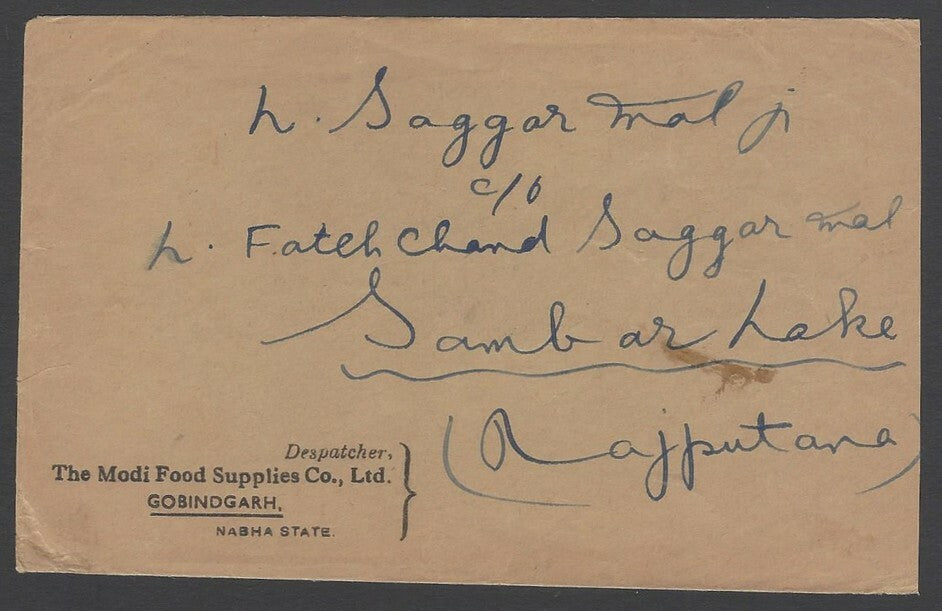 L. Saggar mal ji
c/o
L. Fateh Chand Saggar mal
Sambar Lake
(Rajputana)
Despatcher,
The Modi Food Supplies Co., Ltd.
GOBINDGARH,
NABHA STATE.